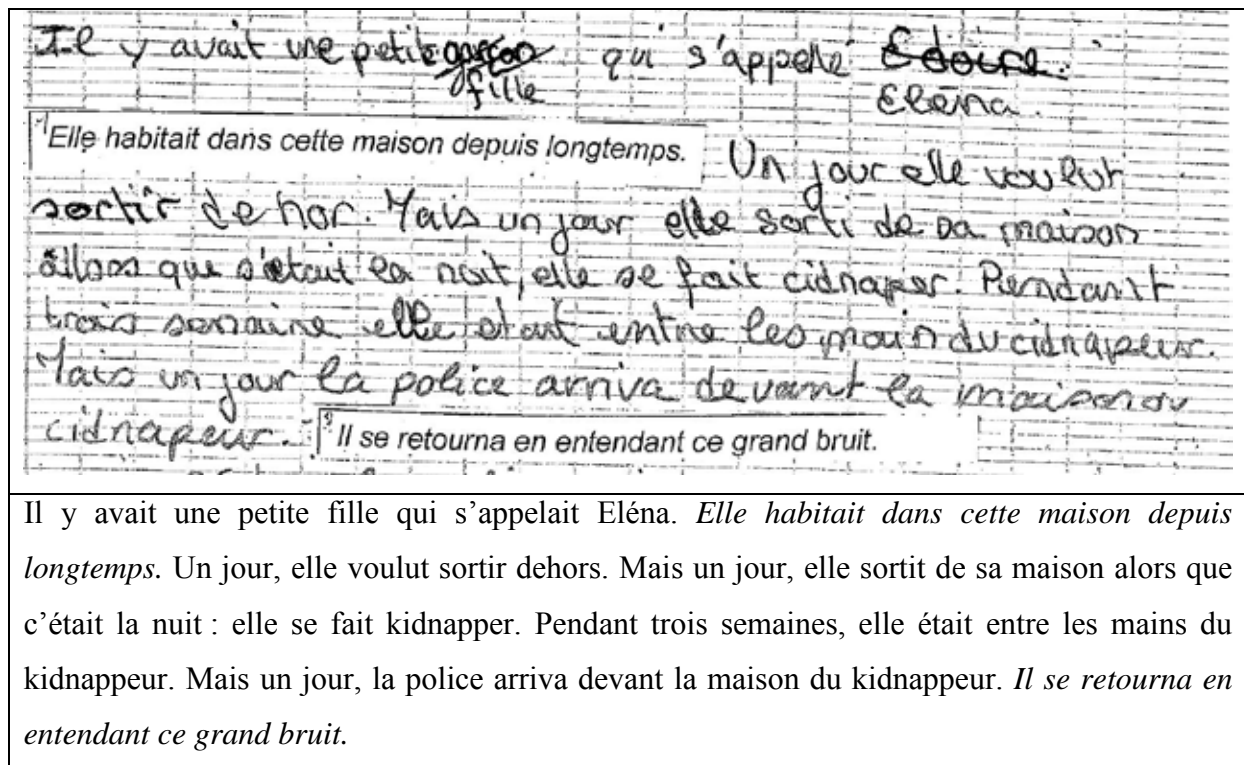 Il y avait une petite garçon qui s'appelé Edoire.
fille Eléna.
Elle habitait dans cette maison depuis longtemps. Un jour elle voulut
sortir de hor. Mais un jour elle sorti de sa maison
allors que s'était la nuit, elle se fait cidnaper. Pendant
trois semaine elle etait entre les main du cidnapeur.
Mais un jour la police arriva devant la maison du
cidnapeur. Il se retourna en entendant ce grand bruit.
Il y avait une petite fille qui s’appelait Eléna. Elle habitait dans cette maison depuis
longtemps. Un jour, elle voulut sortir dehors. Mais un jour, elle sortit de sa maison alors que
c’était la nuit : elle se fait kidnapper. Pendant trois semaines, elle était entre les mains du
kidnappeur. Mais un jour, la police arriva devant la maison du kidnappeur. Il se retourna en
entendant ce grand bruit.